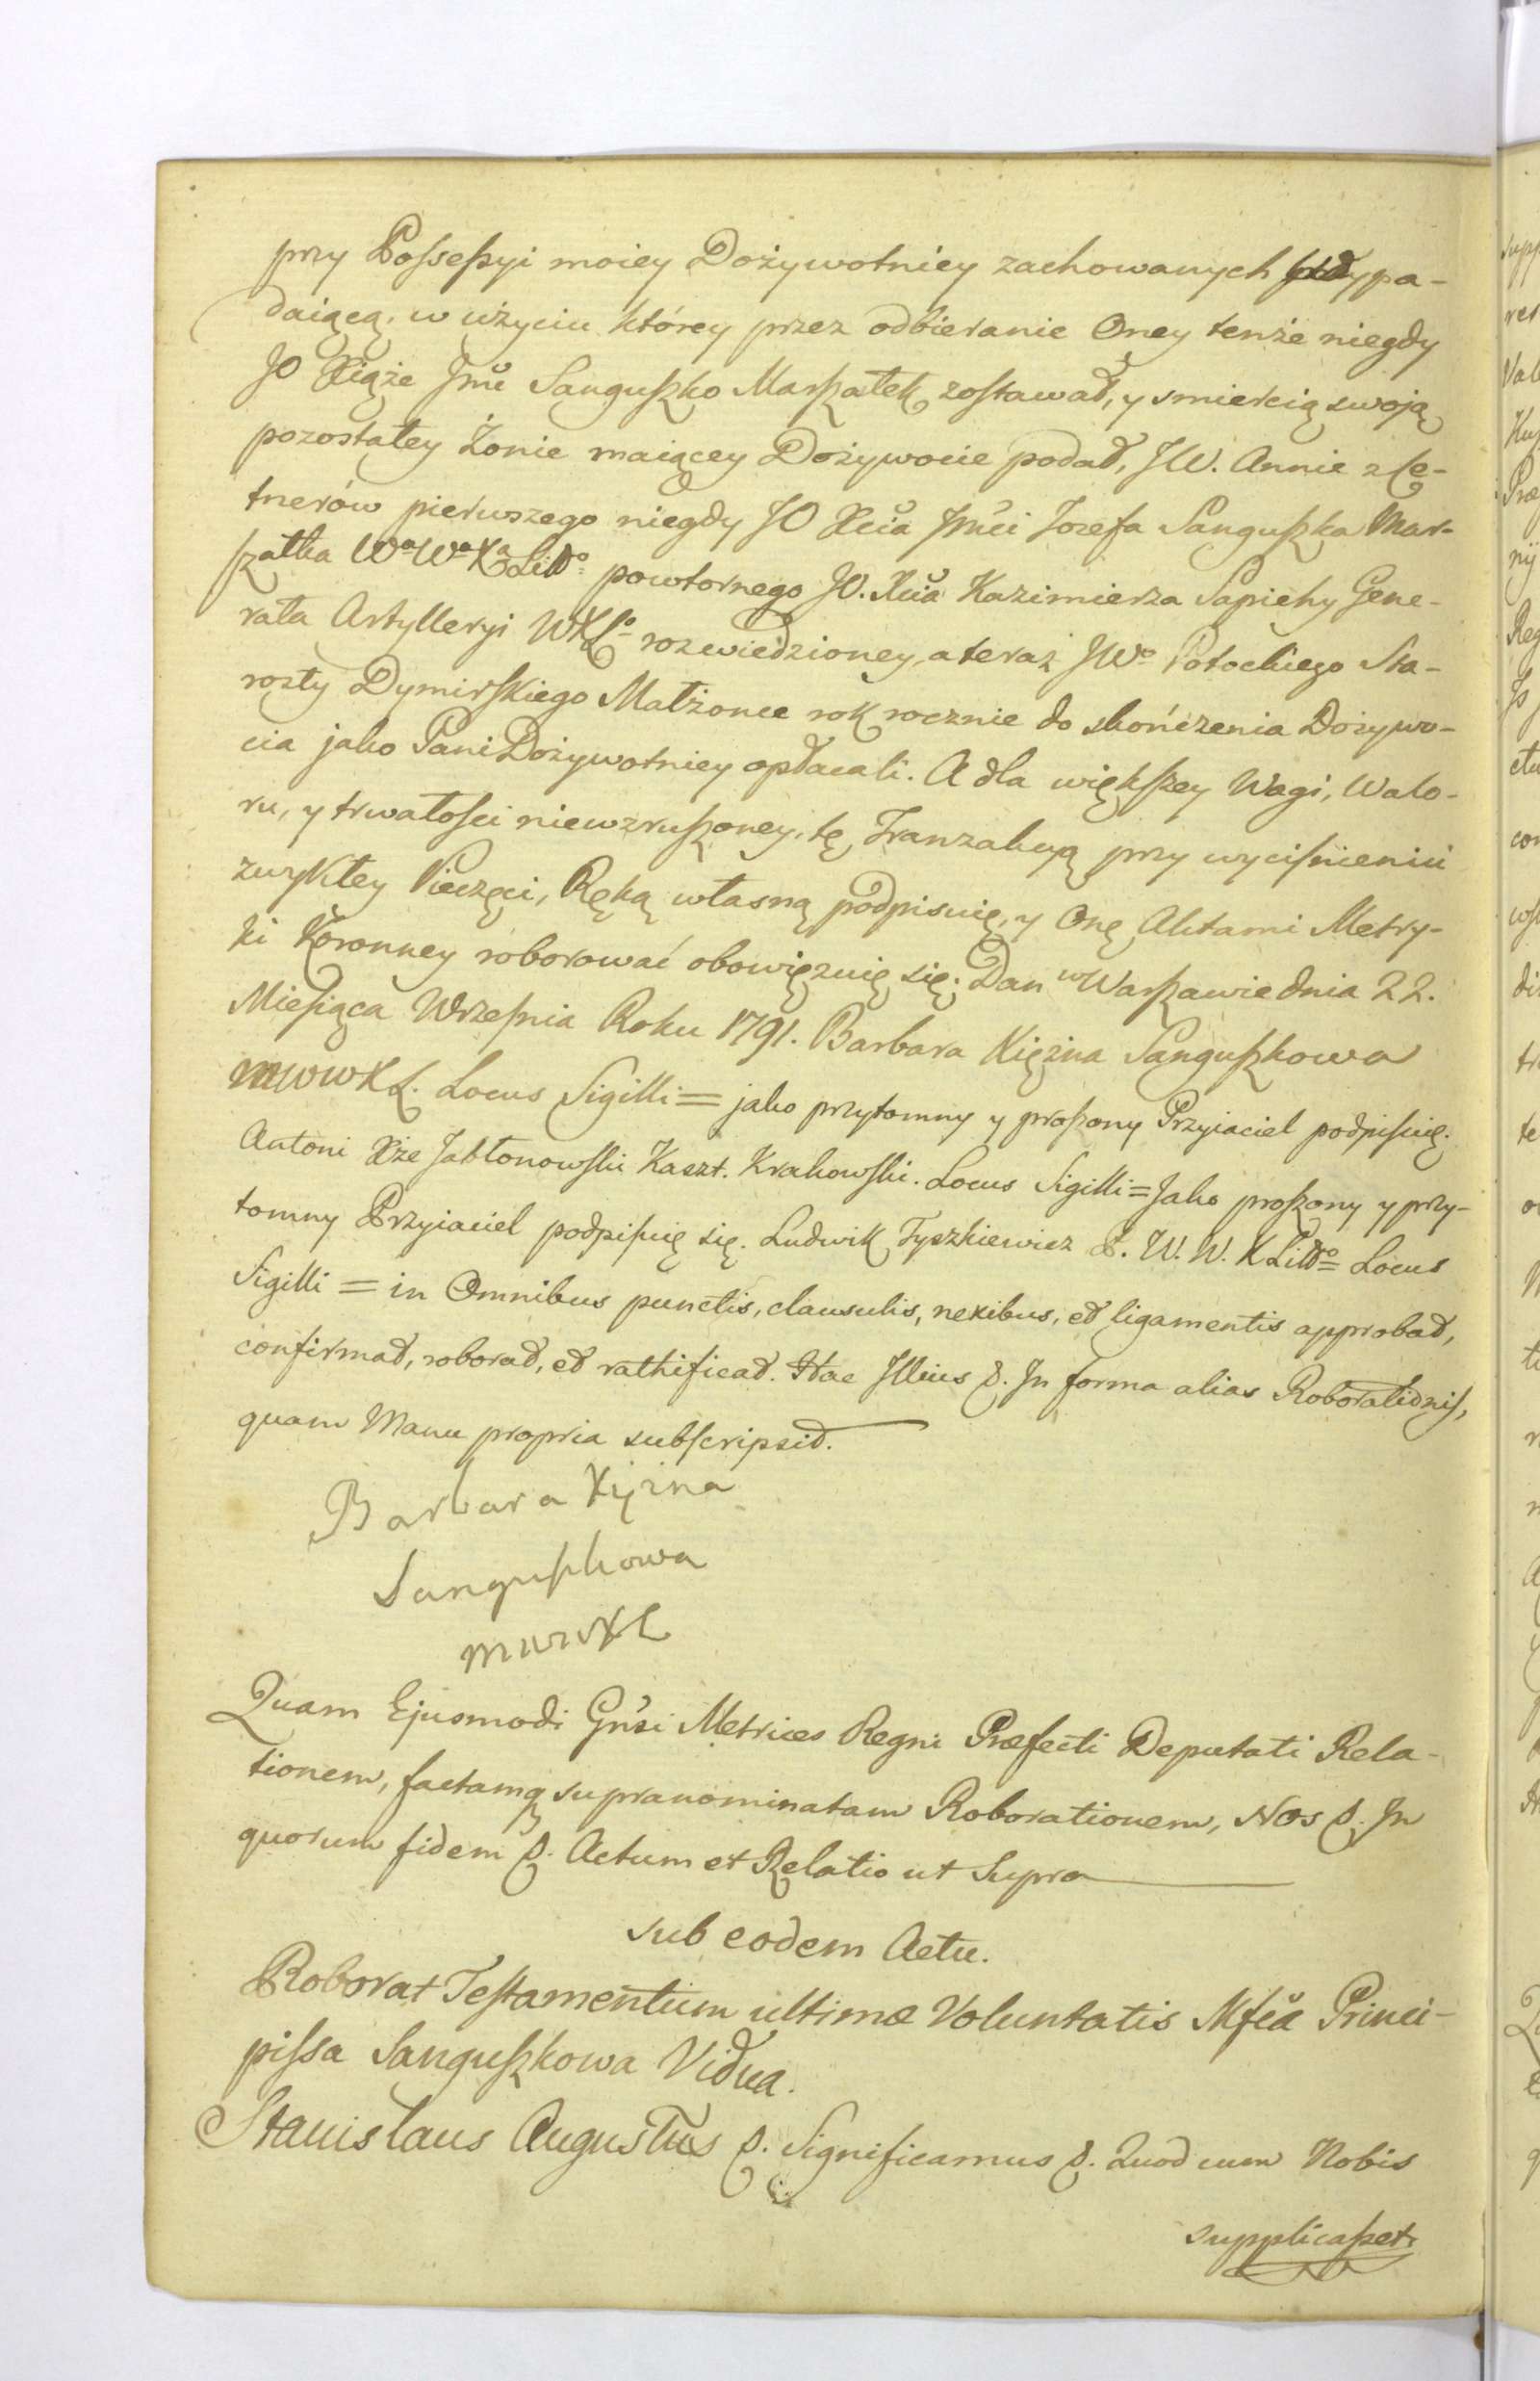 przy Possessyi moiey Dożywotniey zachowanych wypa-
daiącą, w użyciu którey przez odbieranie Oney tenże niegdy
JO Xiąże Jmć Sanguszko Marszałek zostawał, y smiercią swoją
pozostałey Żonie maiącey Dożywocie podał, JW. Annie z Ce-
tnerów pierwszego niegdy JO Xcia Jmci Jozefa Sanguszka Mar-
szałka Wo Wo Xa Litto powtornego JO. Xcia Kazimierza Sapiehy Gene-
rała Artylleryi WXLo rozwiedzioney, a teraz JWo Potockiego Sta-
rosty Dymirskiego Małżonce rok rocznie do skończenia Dożywo-
cia jako Pani Dożywotniey opłacali. A dla większey Wagi, Walo-
ru, y trwałości niewzruszoney, tę Tranzakcyą przy wyciśnieniu
zwykłey Pieczęci, Ręką własną podpisuię, y Onę Aktami Metry-
ki Koronney roborować obowięzuię się. Dan w Warszawie dnia 22.
Miesiąca Września Roku 1791. Barbara Xięzna Sanguszkowa
MWWXL. Locus Sigilli = jako przytomny y proszony Przyiaciel podpisuię.
Antoni Xże Jabłonowski Kaszt. Krakowski. Locus Sigilli = Jako proszony y przy-
tomny Przyiaciel podpisuię się. Ludwik Tyszkiewicz P. W. W. XLitto = Locus
Sigilli = in Omnibus punctis, clausulis, nexibus, et ligamentis approbat,
confirmat, roborat, et rathificat. Hac Illius &. In forma alias Roborationis,
quam Manu propria subscripsit.
Barbara Xięzna
Sanguszkowa
MWWXL
Quam Ejusmodi Gnsi Metrices Regni Præfecti Deputati Rela-
tionem, factamq supranominatam Roborationem, Nos &. In
quorum fidem &. Actum et Relatio ut Supra
sub eodem Actu.
Roborat Testamentum ultimæ Voluntatis Mfca Princi-
pissa Sanguszkowa Vidua.
Stanislaus Augustus &. Significamus &. Quod cum Nobis
supplicasset